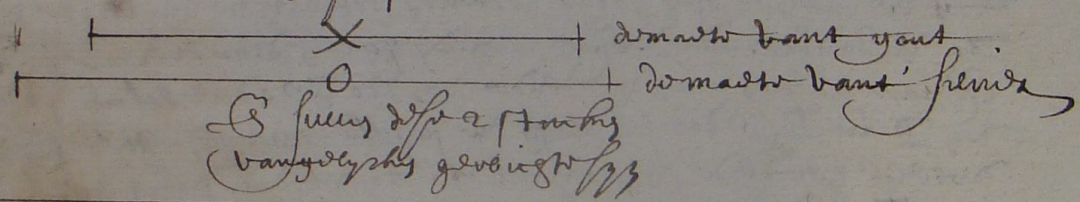 demaete vant gout
demaete vant silver
En sullen dese 2 stucken
van gelycken gewichte syn